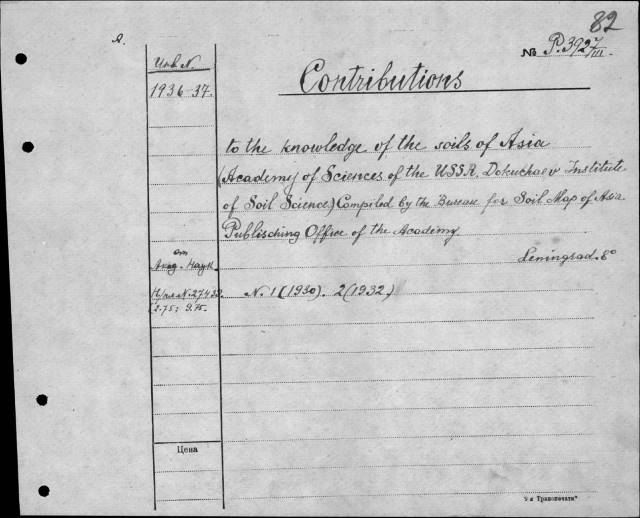 82
A.
№ P.3927/III.
Инв. N.
1936-37.
Contributions
to the knowledge of the soils of Asia
(Academy of Sciences of the USSR, Dokuchaev Institute
of Soil Science) Compiled by the Bureau for Soil Map of Asia
Publisching Office of the Academy
Leningrad. 8°
от
Акад. Наук.
N. 1 (1930). 2 (1932)
2.75; 9.75.
Цена